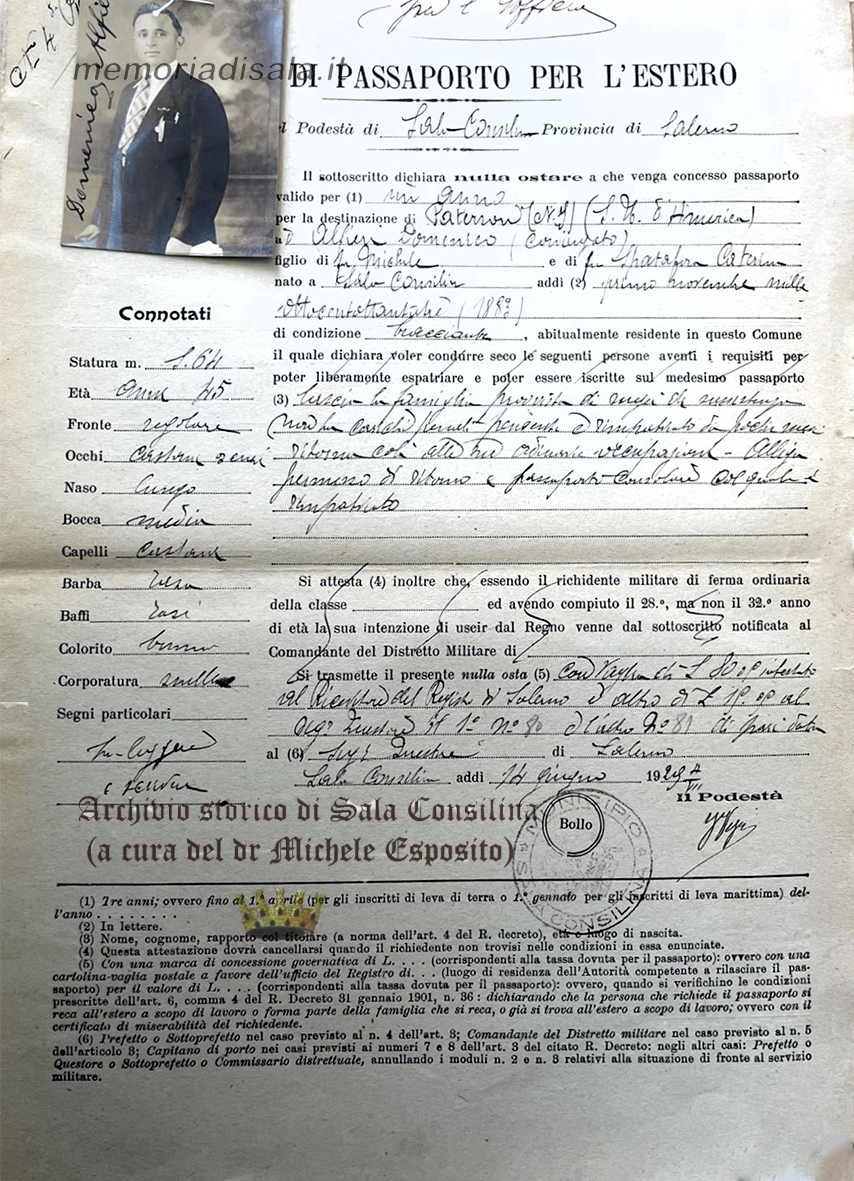 memoriadisala.it
Domenico Alfieri
DI PASSAPORTO PER L'ESTERO
l Podestà di Sala Consilina Provincia di Salerno
Il sottoscritto dichiara nulla ostare a che venga concesso passaporto
valido per (1) un anno
per la destinazione di Paterson (N.J) (S. U. d'America)
a Alfieri Domenico (Coniugato)
figlio di fu Michele e di fu Spatafora Caterina
nato a Sala Consilina addì (2) primo novembre mille
ottocentottantatré (1883)
di condizione bracciante, abitualmente residente in questo Comune
il quale dichiara voler condurre seco le seguenti persone aventi i requisiti per
poter liberamente espatriare e poter essere iscritte sul medesimo passaporto
(3) Lascia la famiglia provvista di mezzi di
ritorna colà alle sue ordinarie occupazioni - Allega
permesso di ritorno e passaporto consolare col quale è
rimpatriato
Connotati
Statura m. 1.64
Età anni 45
Fronte regolare
Occhi castani
Naso lungo
Bocca media
Capelli castani
Barba rasa
Baffi rasi
Colorito bruno
Corporatura snella
Segni particolari
Sa leggere
e scrivere
Si attesta (4) inoltre che, essendo il richidente militare di ferma ordinaria
della classe ed avendo compiuto il 28.º, ma non il 32.º anno
di età la sua intenzione di uscir dal Regno venne dal sottoscritto notificata al
Comandante del Distretto Militare di
Si trasmette il presente nulla osta (5) con vaglia di L
al Ricevitore del Registro di Salerno e altro di L al
Sigr Questore il 1º Nº 80 e l'altro Nº 81 di pari data
al (6) Sigr Questore di Salerno
Sala Consilina addì 14 giugno 1929
Il Podestà
Bollo
MUNICIPIO SALA CONSILINA
Archivio storico di Sala Consilina
(a cura del dr Michele Esposito)
(1) Tre anni; ovvero fino al 1.º aprile (per gli inscritti di leva di terra o 1.º gennato per gli inscritti di leva marittima) del-
l'anno . . . . . . . .
(2) In lettere.
(3) Nome, cognome, rapporto col titolare (a norma dell'art. 4 del R. decreto), età e luogo di nascita.
(4) Questa attestazione dovrà cancellarsi quando il richiedente non trovisi nelle condizioni in essa enunciate.
(5) Con una marca di concessione governativa di L. . . . (corrispondenti alla tassa dovuta per il passaporto): ovvero con una
cartolina-vaglia postale a favore dell'ufficio del Registro di. . . (luogo di residenza dell'Autorità competente a rilasciare il pas-
saporto) per il valore di L. . . . (corrispondenti alla tassa dovuta per il passaporto): ovvero, quando si verifichino le condizioni
prescritte dell'art. 6, comma 4 del R. Decreto 31 gennaio 1901, n. 36 : dichiarando che la persona che richiede il passaporto si
reca all'estero a scopo di lavoro o forma parte della famiglia che si reca, o già si trova all'estero a scopo di lavoro; ovvero con il
certificato di miserabilità del richiedente.
(6) Prefetto o Sottoprefetto nel caso previsto al n. 4 dell'art. 3; Comandante del Distretto militare nel caso previsto al n. 5
dell'articolo 3; Capitano di porto nei casi previsti ai numeri 7 e 8 dell'art. 3 del citato R. Decreto: negli altri casi: Prefetto o
Questore o Sottoprefetto o Commissario distrettuale, annullando i moduli n. 2 e n. 3 relativi alla situazione di fronte al servizio
militare.